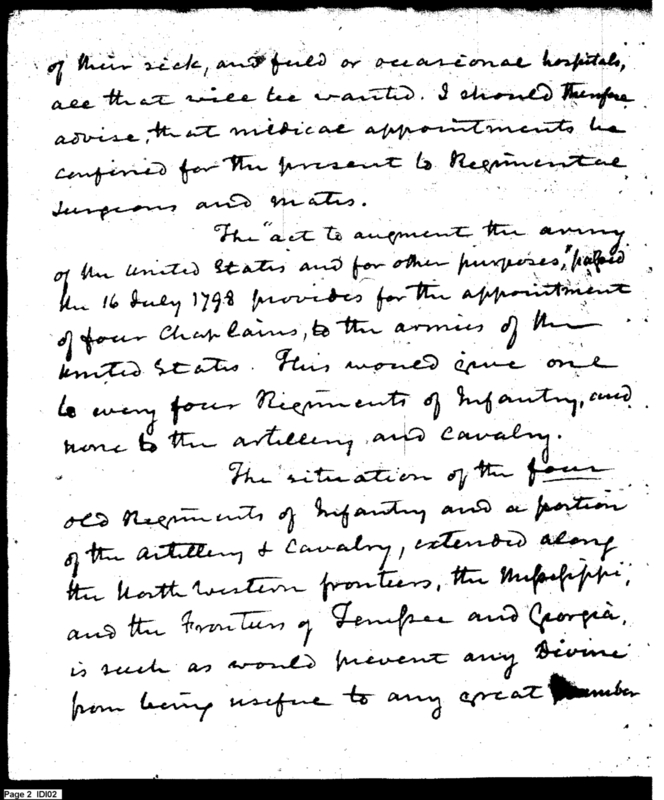 of their sick, and field or occasional hospitals,
all that will be wanted. I should therefore
advise, that medical appointments be
confined for the present to Regimental
surgeons and mates.
The "act to augment the army
of the United States and for other purposes," passed
the 16 July 1798 provides for the appointment
of four Chaplains, to the armies of the
United States. This would give one
to every four Regiments of Infantry, and
none to the artillery and cavalry.
The situation of the four
old Regiments of Infantry and a portion
of the Artillery & Cavalry, extended along
the North Western frontiers, the Mississippi,
and the Frontiers of Tennessee and Georgia,
is such as would prevent any Divine
from being useful to any great number
Page 2 IDI02